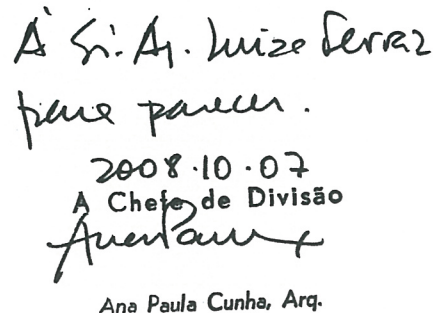 À Sr.ª Ar. Luiza Ferraz
para parecer.
2008.10.07
A Chefe de Divisão
Ana Paula
Ana Paula Cunha, Arq.